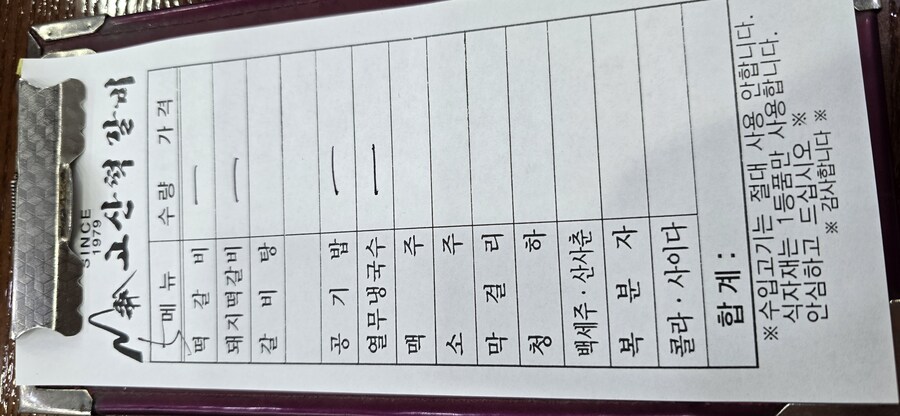 SINCE
1979
고산떡갈비
메뉴 수량 가격
떡갈비 一
돼지떡갈비 一
갈비탕
공기밥 一
열무냉국수 一
맥주
소주
막걸리
청하
백세주·산사춘
복분자
콜라·사이다
합계:
※수입고기는 절대 사용 안합니다.
식자재는 1등품만 사용합니다.
안심하고 드십시오 ※
※ 감사합니다 ※